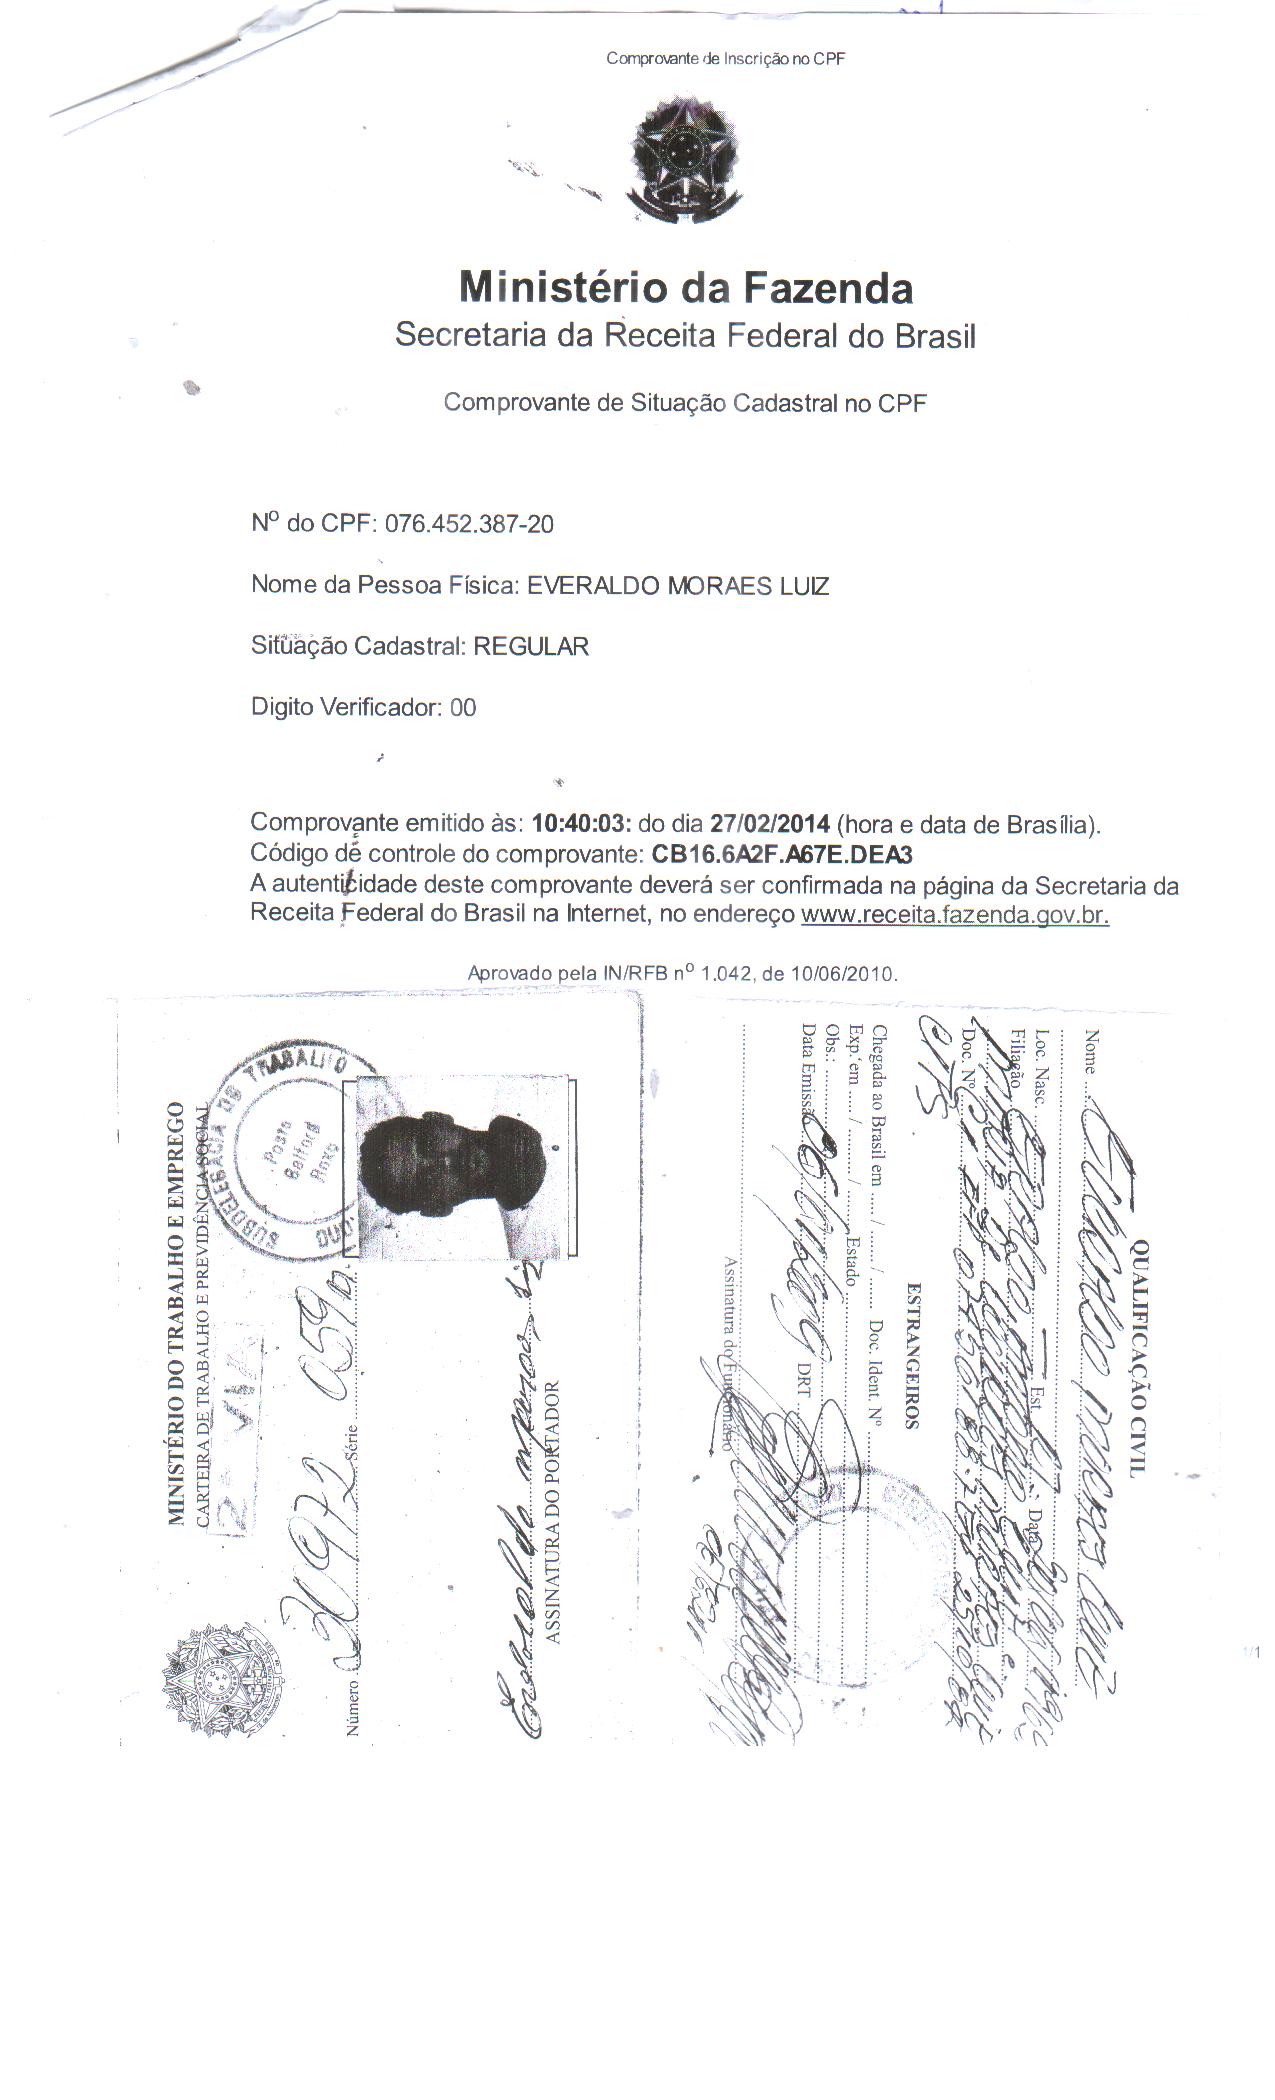 Comprovante de Inscrição no CPF
Ministério da Fazenda
Secretaria da Receita Federal do Brasil
Comprovante de Situação Cadastral no CPF
Nº do CPF: 076.452.387-20
Nome da Pessoa Física: EVERALDO MORAES LUIZ
Situação Cadastral: REGULAR
Digito Verificador: 00
Comprovante emitido às: 10:40:03: do dia 27/02/2014 (hora e data de Brasília).
Código de controle do comprovante: CB16.6A2F.A67E.DEA3
A autenticidade deste comprovante deverá ser confirmada na página da Secretaria da
Receita Federal do Brasil na Internet, no endereço www.receita.fazenda.gov.br.
Aprovado pela IN/RFB nº 1.042, de 10/06/2010.
MINISTÉRIO DO TRABALHO E EMPREGO
CARTEIRA DE TRABALHO E PREVIDÊNCIA SOCIAL
SUBDELEGACIA DE TRABALHO
Posto
Belford
Roxo
2ª VIA
Número 30972 Série 059
Everaldo moraes Luiz
ASSINATURA DO PORTADOR
QUALIFICAÇÃO CIVIL
Nome Everaldo moraes Luiz
Loc. Nasc. Est. RJ Data
Filiação
Doc. Nº
CTPS
ESTRANGEIROS
Chegada ao Brasil em ..... / ...... / ...... Doc. Ident. Nº
Exp. em ..... / ...... / ...... Estado
Obs.:
Data Emissão DRT
Assinatura do Funcionário
1/1